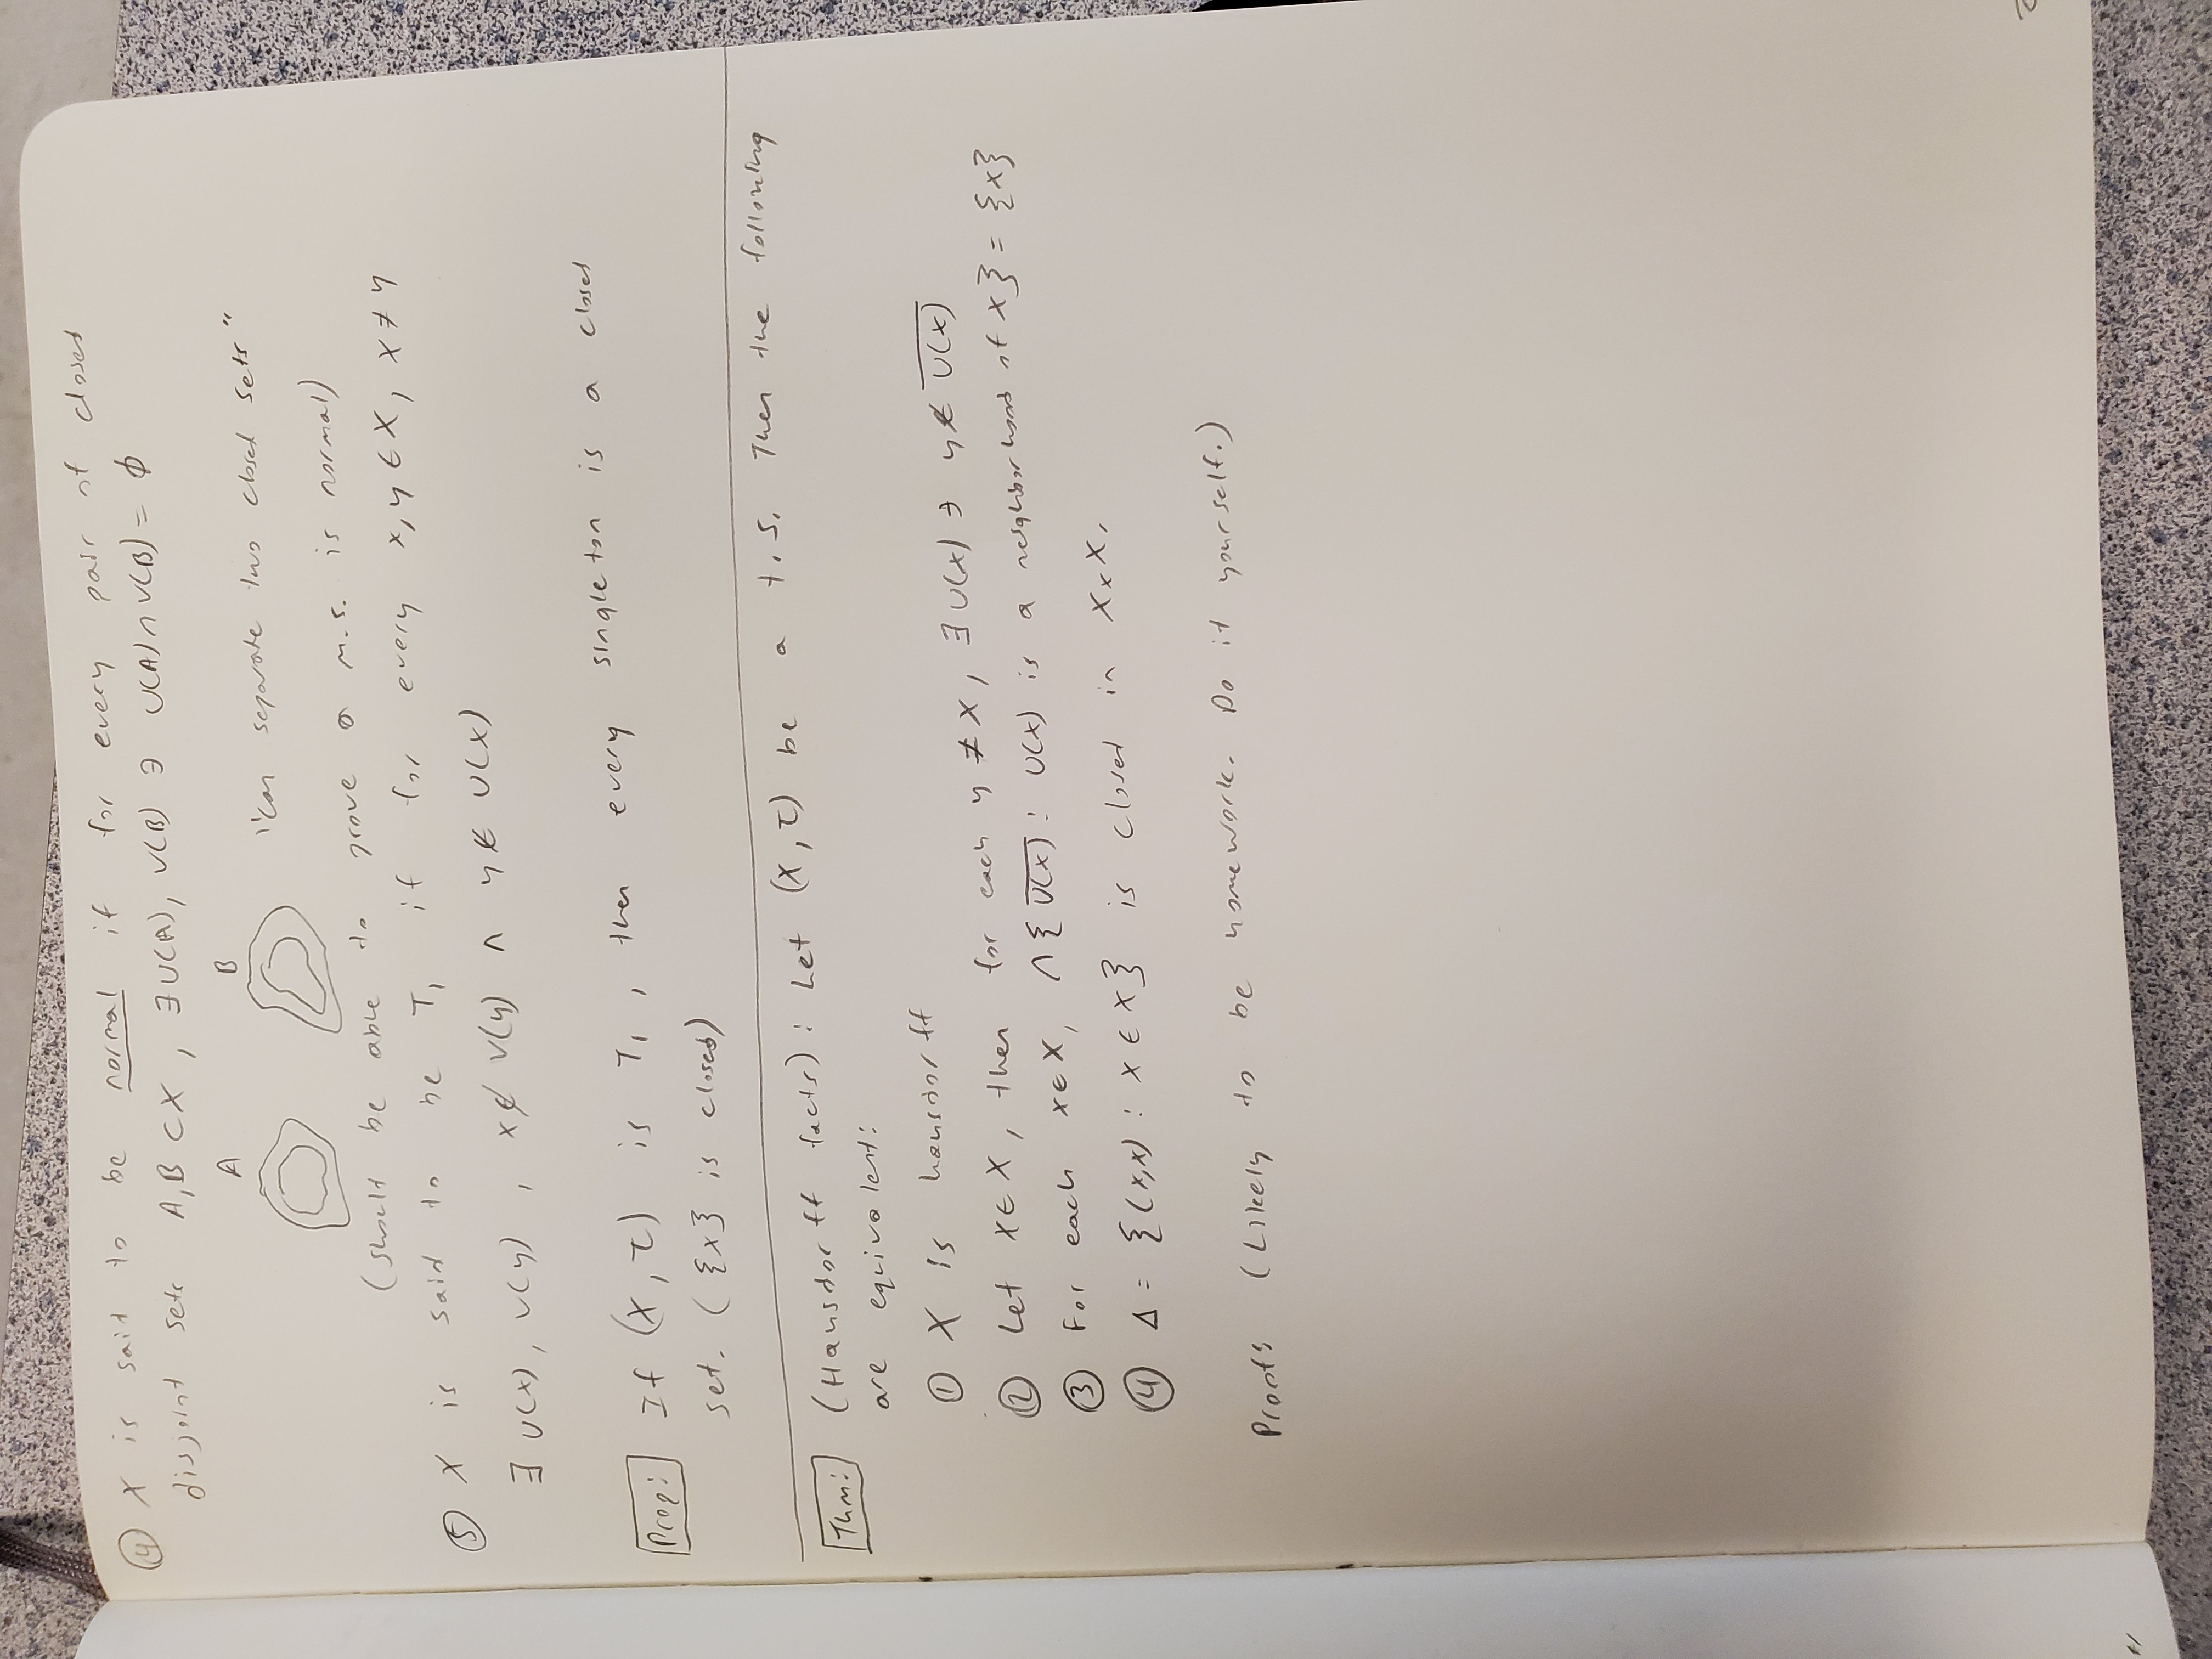 ④ X is said to be normal if for every pair of closed
disjoint sets A,B ⊂ X , ∃ U(A), V(B) ∋ U(A) ∩ V(B) = ϕ
A B
"can separate two closed sets"
(should be able to prove a m.s. is normal)
⑤ X is said to be T₁ if for every x,y ∈ X, x ≠ y
∃ U(x), V(y) , x ∉ V(y) ∧ y ∉ U(x)
Prop: If (X, τ) is T₁ , then every singleton is a closed
set. ( {x} is closed)
Thm: (Hausdorff facts): Let (X, τ) be a t.s. Then the following
are equivalent:
① X is hausdorff
② Let x ∈ X, then for each y ≠ x, ∃ U(x) ∋ y ∉ \overline{U(x)}
③ For each x ∈ X, ∩{ \overline{U(x)} : U(x) is a neighborhood of x} = {x}
④ Δ = {(x,x) : x ∈ X} is closed in X × X.
Proof: (Likely to be homework. Do it yourself.)